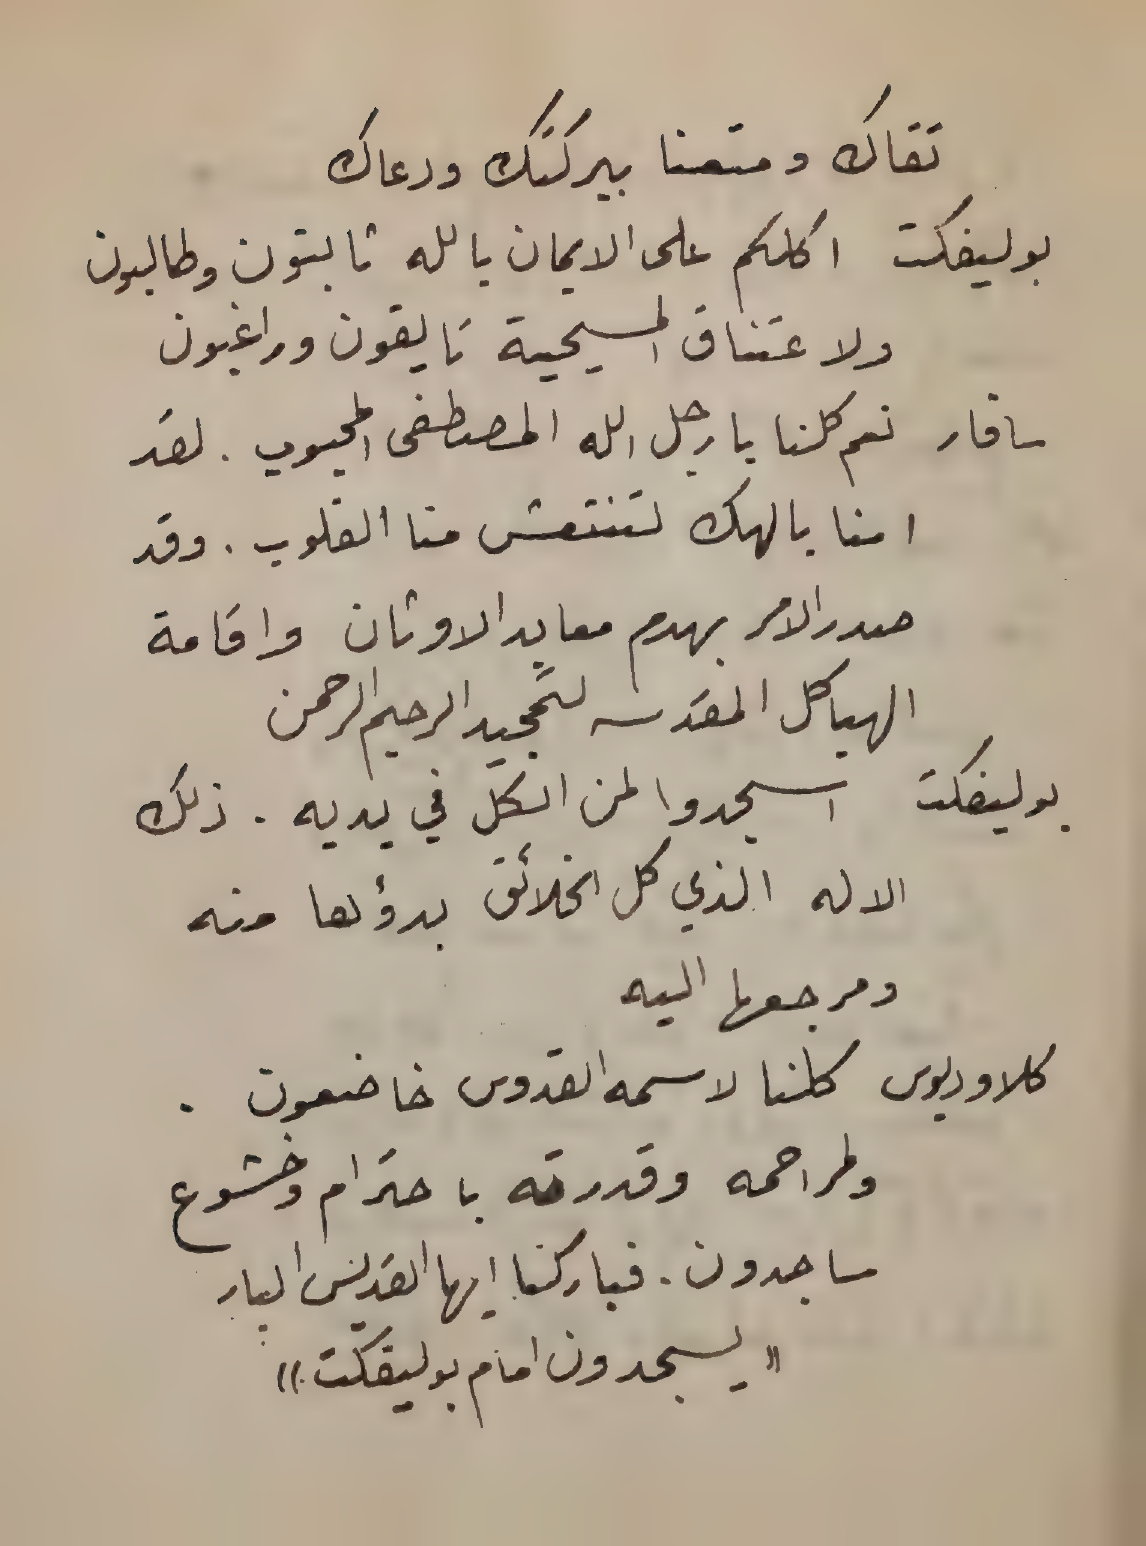 تقاك ومتعنا ببركتك ودعاك
بوليفكت اكلكم على الايمان بالله ثابتون وطالبون
ولاعتناق المسيحية تايقون وراغبون
سافار نعم كلنا يا رجل الله المصطفى المحبوب . لقد
امنا بالهك لتنتعش منا القلوب . وقد
صدر الامر بهدم معابد الاوثان واقامة
الهياكل المقدسه لتمجيد الرحيم الرحمن
بوليفكت اسجدوا لمن الكل في يديه . ذلك
الاله الذي كل الخلائق بدؤها منه
ومرجعها اليه
كلاوديوس كلنا لاسمه القدوس خاضعون .
ولمراحمه وقدرته باحترام وخشوع
ساجدون . فباركنا ايها القديس البار
« يسجدون امام بوليفكت »